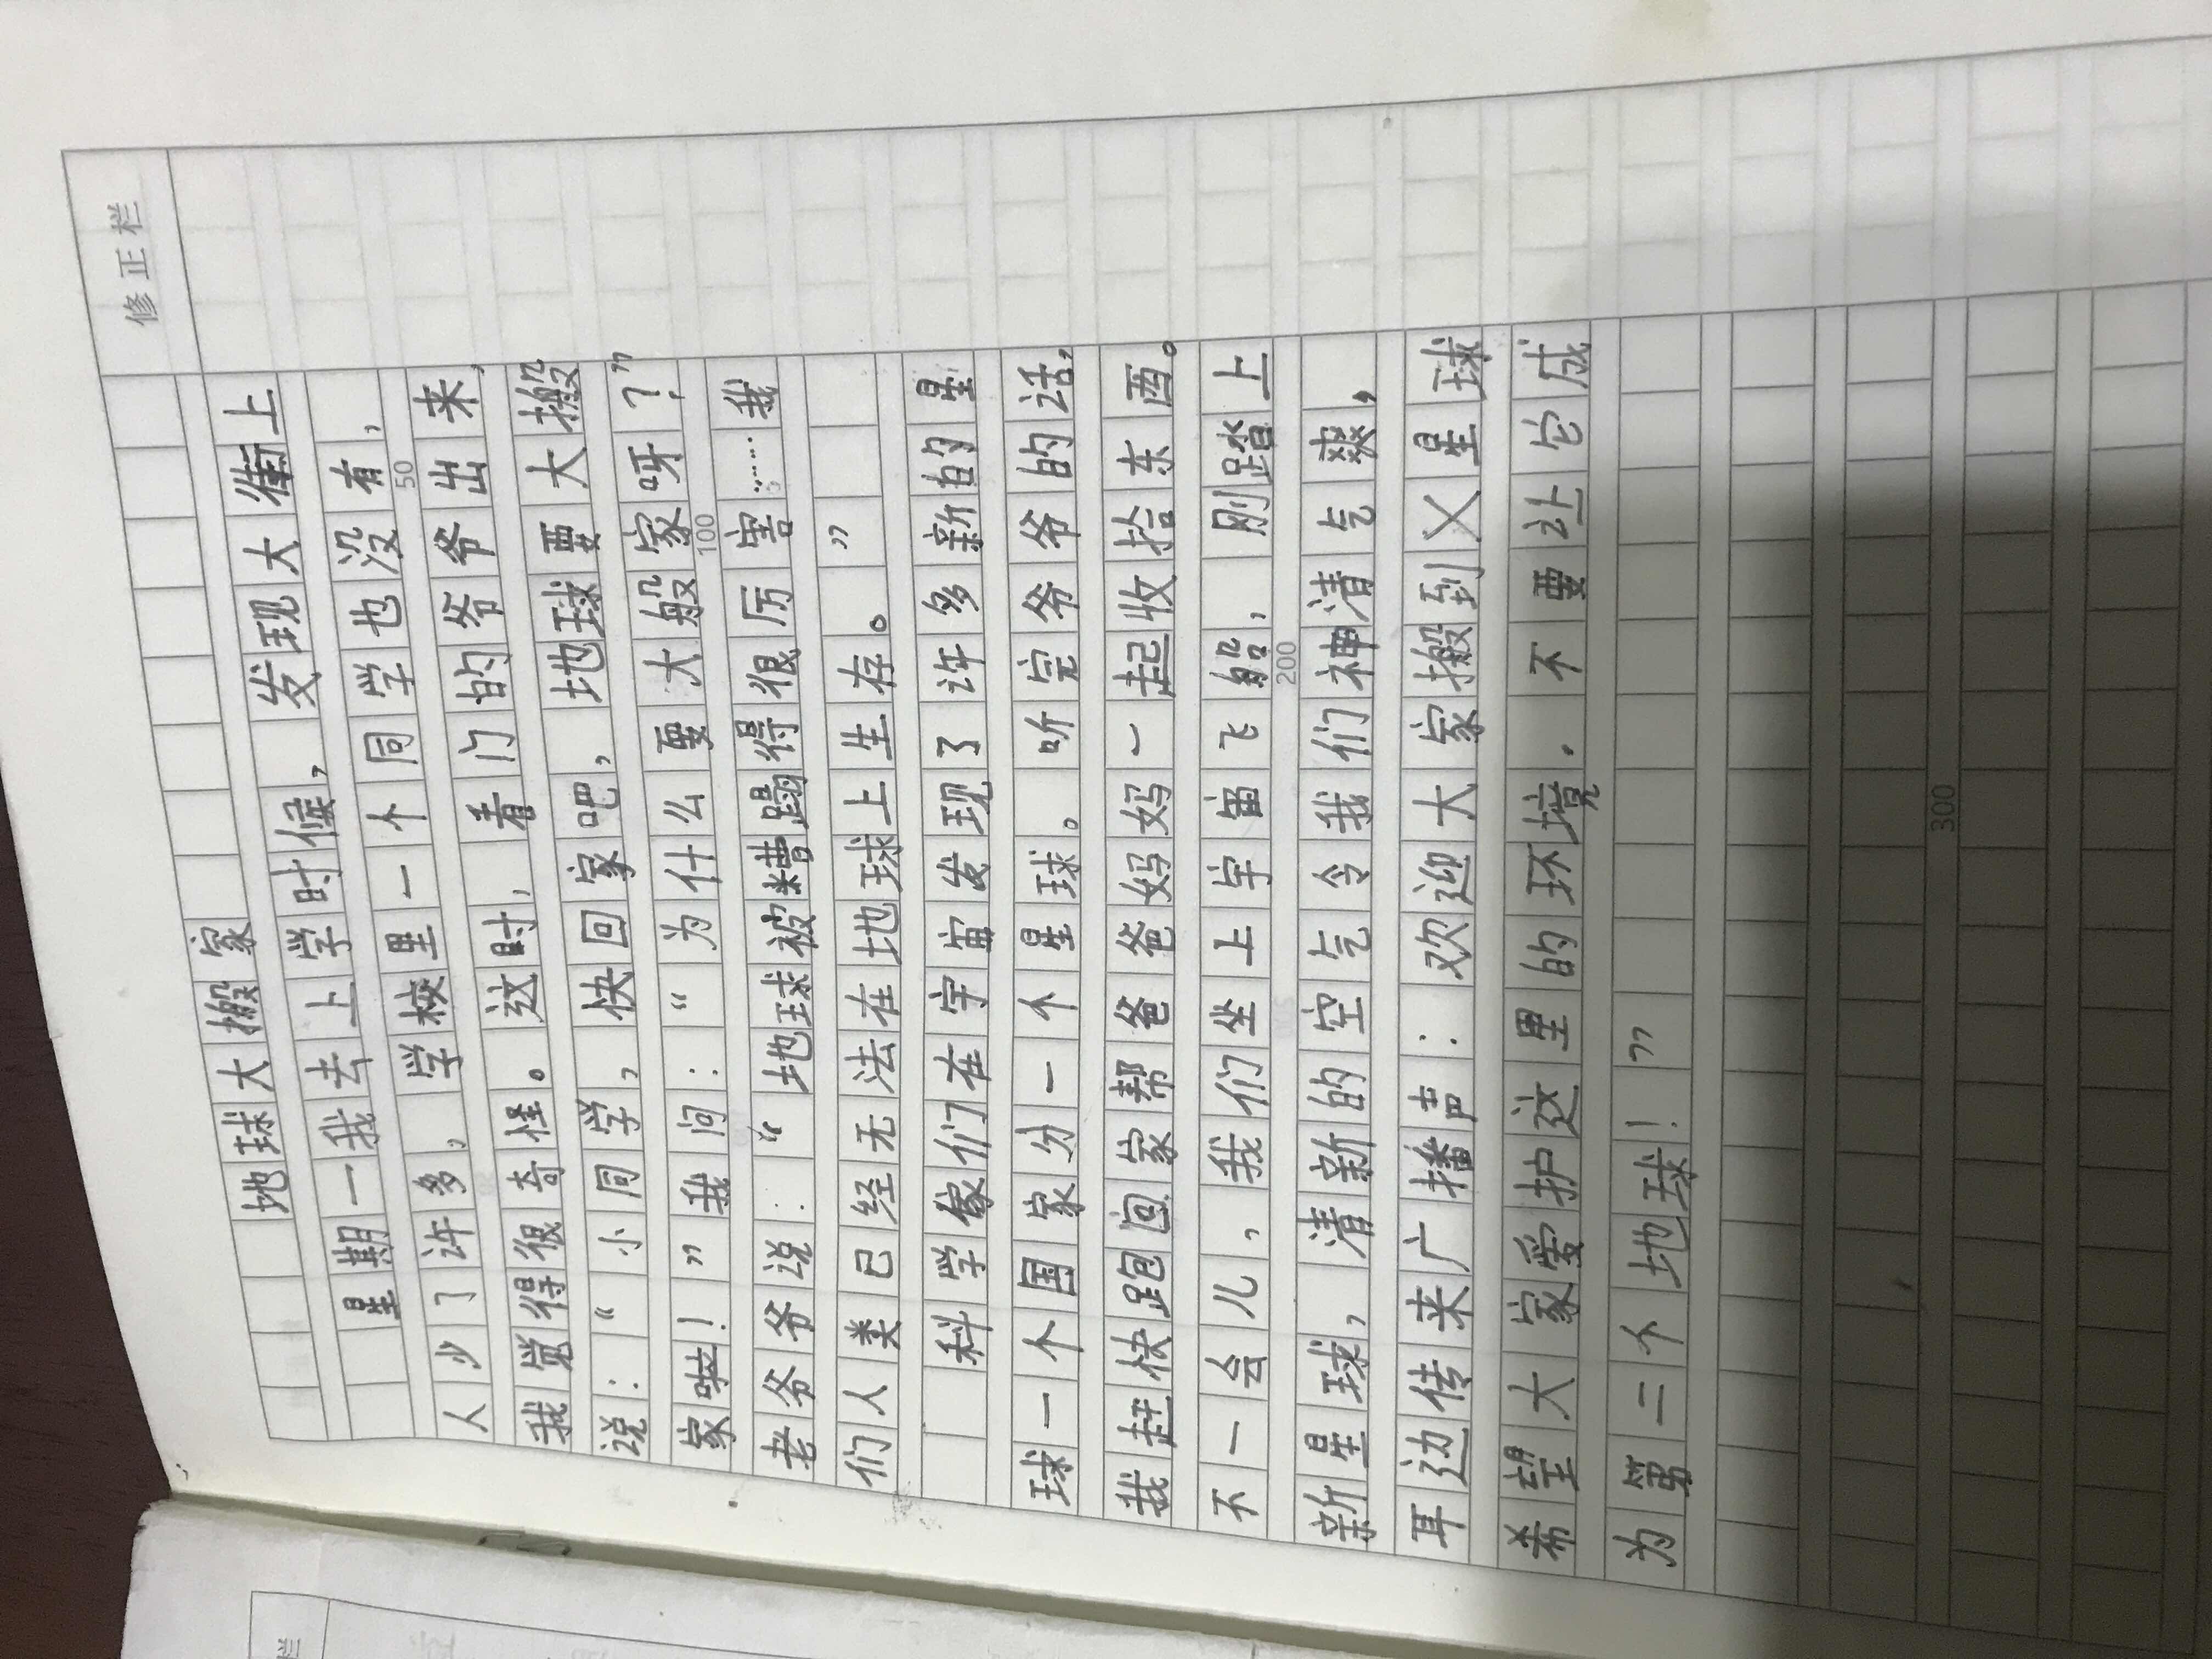 修正栏
地球大搬家
星期一我去上学时候，发现大街上
人少了许多，学校里一个同学也没有，
50
我觉得很奇怪。这时，看门的爷爷出来，
说：“小同学，快回家吧，地球要大搬
家啦！”我问：“为什么要大般家呀？”
100
老爷爷说：“地球被糟蹋得很厉害……我
们人类已经无法在地球上生存。”
科学家们在宇宙发现了许多新的星
球一个国家分一个星球。听完爷爷的话，
我赶快跑回家帮爸爸妈妈一起收拾东西。
不一会儿，我们坐上宇宙飞船，刚踏上
200
新星球，清新的空气令我们神清气爽，
耳边传来广播声：欢迎大家搬到X星球
希望大家爱护这里的环境．不要让它成
为第二个地球！”
300
栏